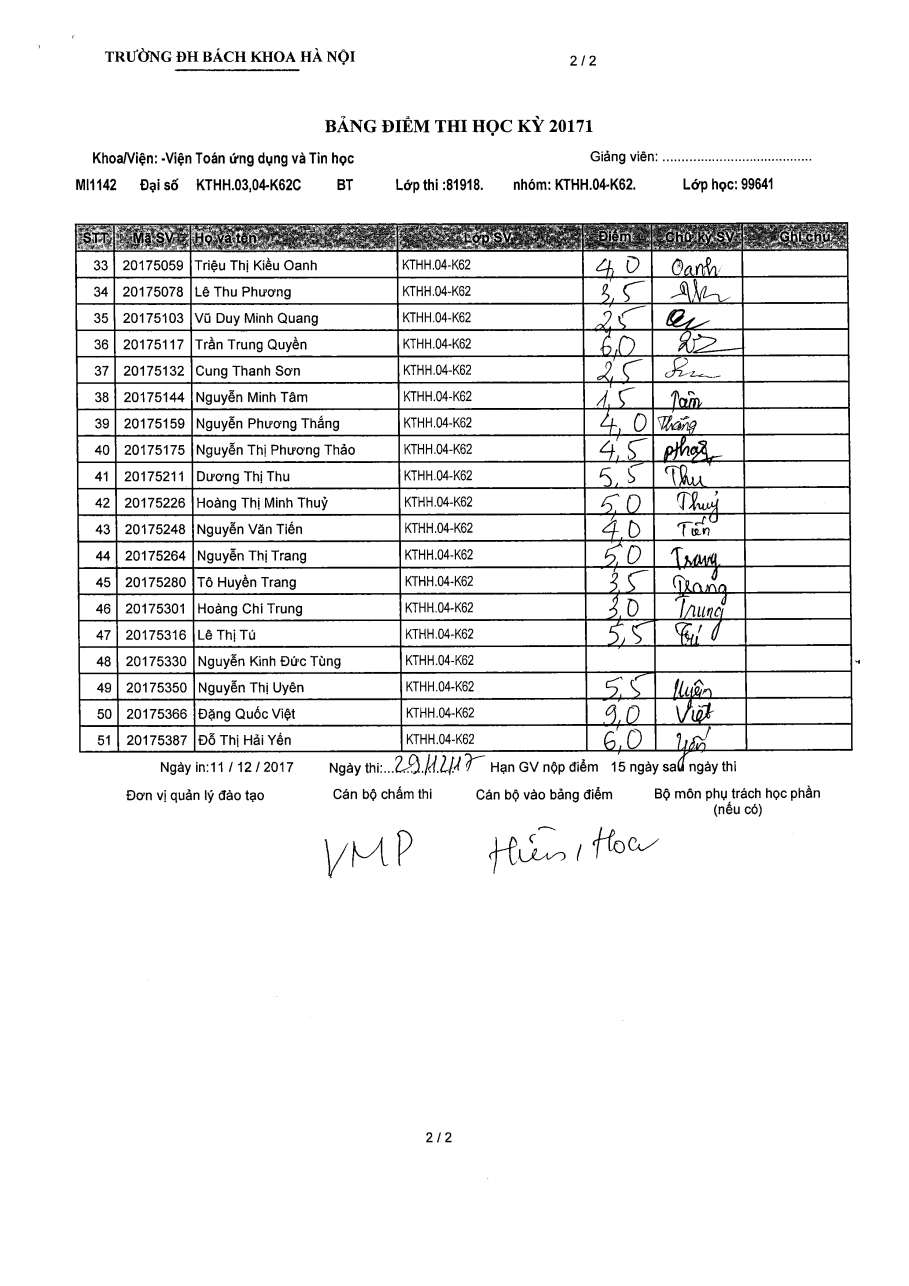 TRƯỜNG ĐH BÁCH KHOA HÀ NỘI 2 / 2
BẢNG ĐIỂM THI HỌC KỲ 20171
Khoa/Viện: -Viện Toán ứng dụng và Tin học Giảng viên: .........................................
MI1142 Đại số KTHH.03,04-K62C BT Lớp thi :81918. nhóm: KTHH.04-K62. Lớp học: 99641
STT Mã SV Họ và tên Lớp SV Điểm Chữ ký SV Ghi chú
33 20175059 Triệu Thị Kiều Oanh KTHH.04-K62 4,0 Oanh
34 20175078 Lê Thu Phương KTHH.04-K62 3,5
35 20175103 Vũ Duy Minh Quang KTHH.04-K62 2,5
36 20175117 Trần Trung Quyền KTHH.04-K62 6,0
37 20175132 Cung Thanh Sơn KTHH.04-K62 2,5
38 20175144 Nguyễn Minh Tâm KTHH.04-K62 1,5 Tâm
39 20175159 Nguyễn Phương Thắng KTHH.04-K62 4,0 Thắng
40 20175175 Nguyễn Thị Phương Thảo KTHH.04-K62 4,5 pthaỏ
41 20175211 Dương Thị Thu KTHH.04-K62 5,5 Thu
42 20175226 Hoàng Thị Minh Thuỷ KTHH.04-K62 5,0 Thuỷ
43 20175248 Nguyễn Văn Tiến KTHH.04-K62 4,0 Tiến
44 20175264 Nguyễn Thị Trang KTHH.04-K62 5,0 Trang
45 20175280 Tô Huyền Trang KTHH.04-K62 3,5 Trang
46 20175301 Hoàng Chí Trung KTHH.04-K62 3,0 Trung
47 20175316 Lê Thị Tú KTHH.04-K62 5,5 Tú
48 20175330 Nguyễn Kinh Đức Tùng KTHH.04-K62
49 20175350 Nguyễn Thị Uyên KTHH.04-K62 5,5 Uyên
50 20175366 Đặng Quốc Việt KTHH.04-K62 9,0 Việt
51 20175387 Đỗ Thị Hải Yến KTHH.04-K62 6,0 Yến
Ngày in:11 / 12 / 2017 Ngày thi:...29/12/17 Hạn GV nộp điểm 15 ngày sau ngày thi
Đơn vị quản lý đào tạo Cán bộ chấm thi Cán bộ vào bảng điểm Bộ môn phụ trách học phần
(nếu có)
VMP Hiền, Hoa
2 / 2